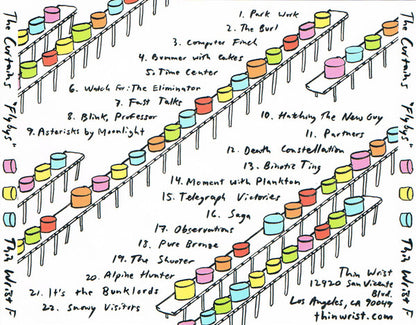 The Curtains "Flybys"
Thin Wrist F
1. Park Work
2. The Burl
3. Computer Finch
4. Bummer with Cakes
5. Time Center
6. Watch for: The Eliminator
7. Fast Talks
8. Blink, Professor
9. Asterisks by Moonlight
10. Hatching The New Guy
11. Partners
12. Death Constellation
13. Ting
14. Moment with Plankton
15. Telegraph Victories
16. Saga
17. Observations
18. Pure Bronze
19. The Shooter
20. Alpine Hunter
21. It's the Bunklords
22. Snowy Visitors
Thin Wrist
12920 San Vicente
Blvd.
Los Angeles, CA 90049
thinwrist.com
The Curtains "Flybys"
Thin Wrist F